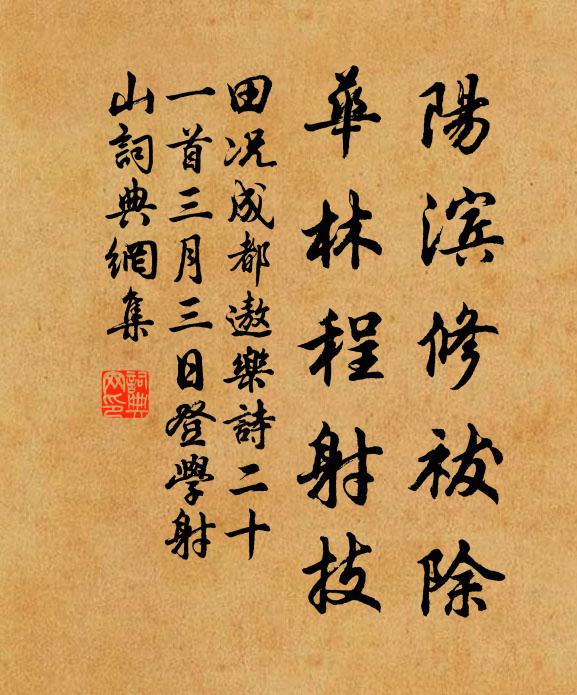 陽滨修祓除
華林程射技
田况成都遨樂詩二十
一首三月三日登學射
山詞典網集
詞典网印